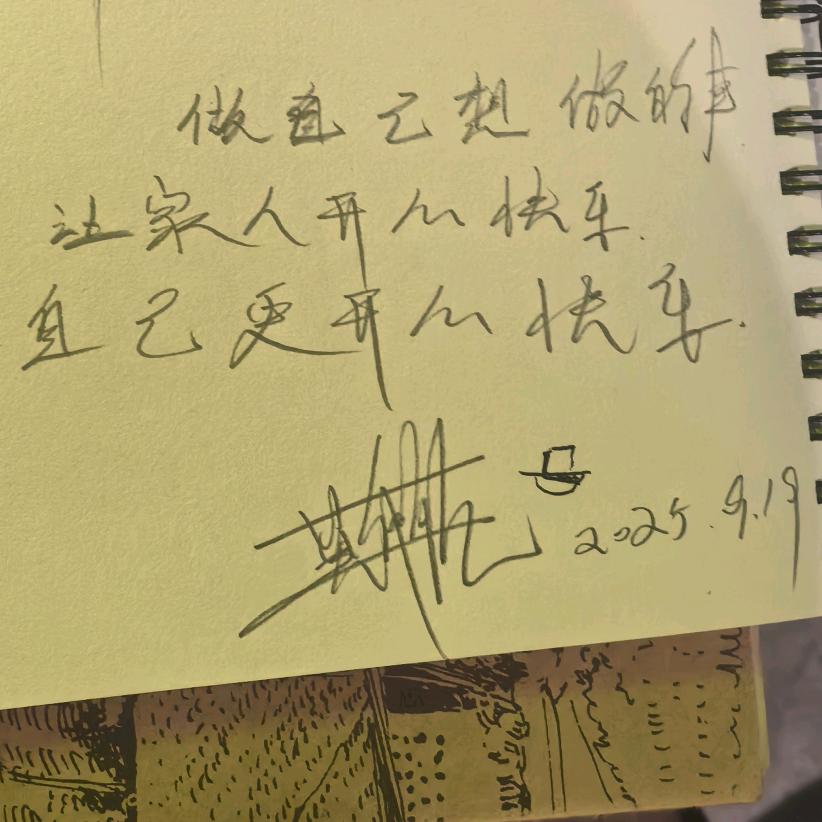 做自己想做的事.
让家人开心快乐.
自己更开心快乐.
2025.9.19